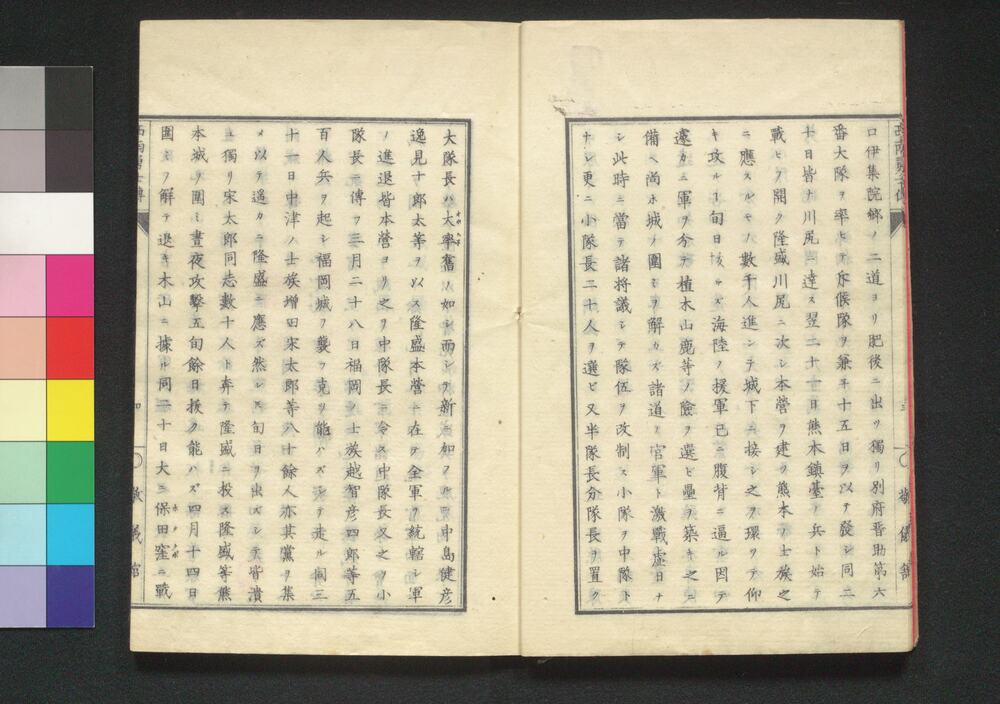 口伊集院鄉ノ二道ヨリ肥後ニ出ツ獨リ別府晋助第六
番大隊ヲ率ヒテ斥候隊ヲ兼子十五日ヲ以テ發シ同二
十日皆ナ川尻ニ達ス翌二十一日熊本鎮臺ノ兵ト始テ
戰ヒヲ開ク隆盛川尻ニ次シ本營ヲ建ツ熊本ノ士族之
ニ應スルモノ數千人進ンテ城下ニ接シ之ヲ環ツテ仰
キ攻ルコ旬日ナラズ海陸ノ援軍已ニ腹背ニ逼ル因テ
遽カニ軍ヲ分テ植木山鹿等ノ險ヲ選ヒ壘ヲ築キ之ニ
備ヘ尚ホ城ノ圍ミヲ解カズ諸道ノ官軍ト激戰虛日ナ
シ此時ニ當テ諸将議シテ隊伍ヲ改制ス小隊ヲ中隊ト
ナシ更ニ小隊長二十人ヲ選ビ又半隊長分隊長ヲ置ク
大隊長ハ大率舊ノ如シ而シテ新ニ加フルニ中島健彦
逸見十郎太等ヲ以ス隆盛本營ニ在テ全軍ヲ統轄シ軍
ノ進退皆本營ヨリ之ヲ中隊長ニ令ス中隊長又之ヲ小
隊長ニ傳フ三月二十八日福岡ノ士族越智彦四郎等五
百人兵ヲ起シ福岡城ヲ襲フ克ツ能ハズシテ走ル同三
十一日中津ノ士族增田宋太郎等八十餘人亦其黨ヲ集
メ以テ遥カニ隆盛ニ應ズ然レ𪜈旬日ヲ出ズシテ皆潰
ユ獨リ宋太郎同志數十人ト奔テ隆盛ニ投ス隆盛等熊
本城ヲ圍ミ晝夜攻擊五旬餘日援ク能ハズ四月十四日
圍ミヲ解テ退キ木山ニ據ル同二十日大ニ保田窪ニ戰